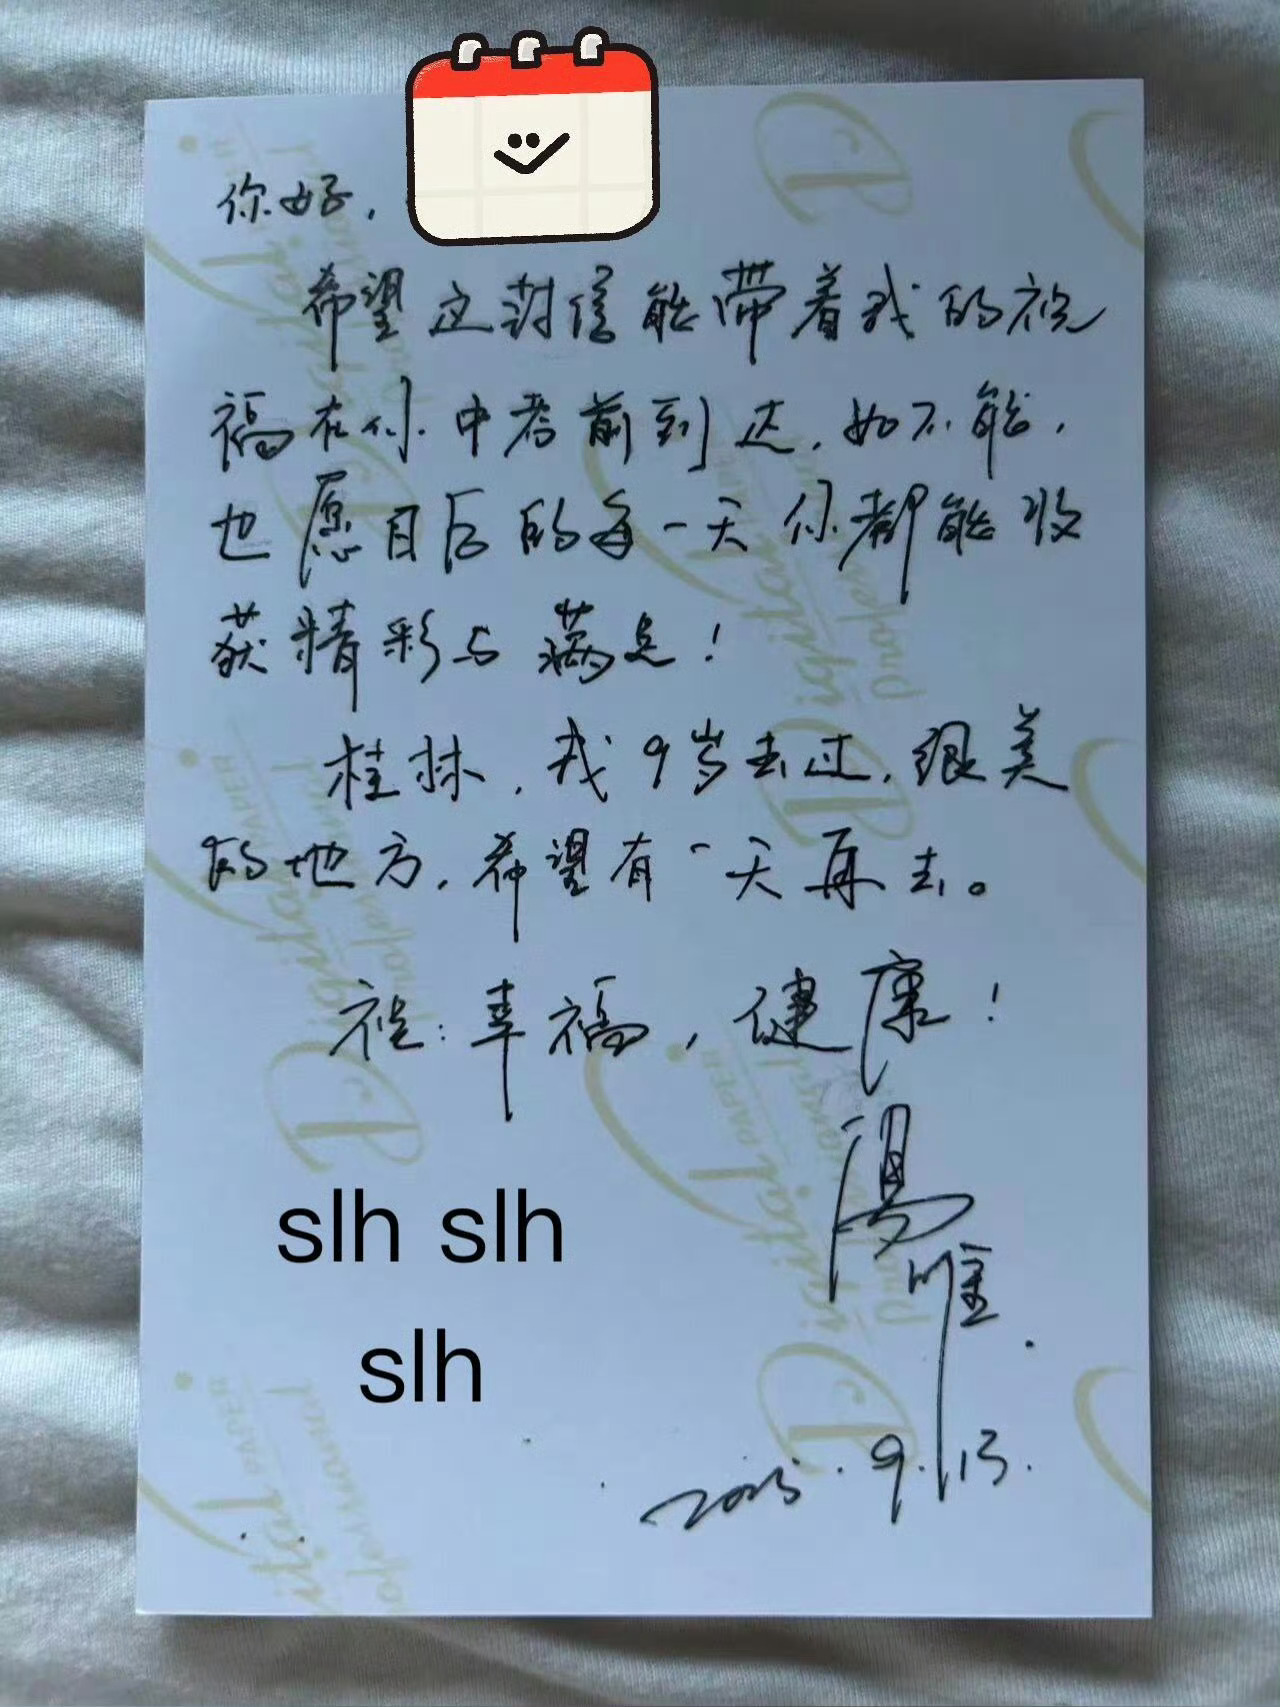 你好,
希望这封信能带着我的祝
福在你中考前到达,如不能,
也愿日后的每一天你都能收
获精彩与满足!
桂林,我9岁去过,很美
的地方,希望有一天再去。
祝:幸福,健康!
湯唯.
2025.9.13.
slh slh
slh